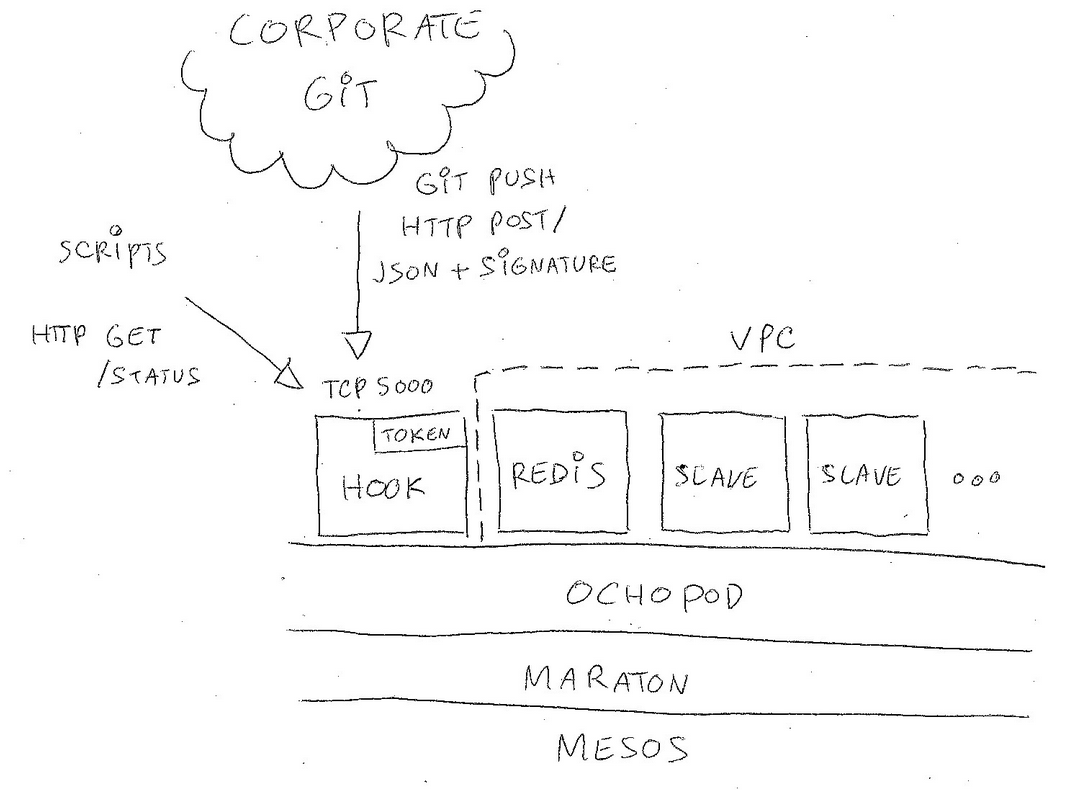 CORPORATE
GiT
GiT PUSH
HTTP POST/
JSON + SiGNATURE
SCRiPTS
HTTP GET
/STATUS
VPC
TCP 5000
TOKEN
HOOK
REDiS
SLAVE
SLAVE
ooo
OCHOPOD
MARATON
MESOS